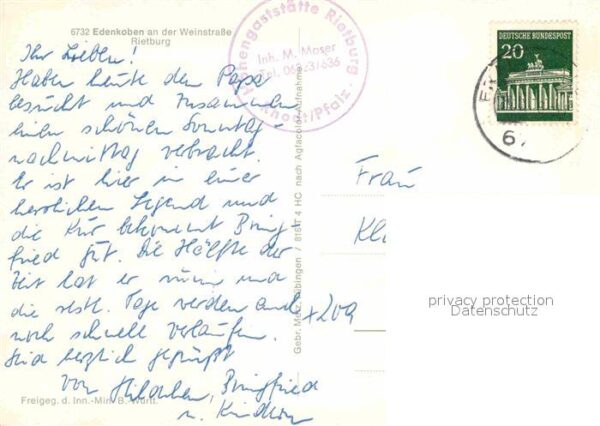 6732 Edenkoben an der Weinstraße
Rietburg
Ihr Lieben!
Haben heute den Papa
besucht und zusammen
einen schönen Sonntag-
nachmittag verbracht.
Er ist hier in einer
herrlichen Gegend und
die Kur bekommt Bring-
fried gut. Die Hälfte der
Zeit hat er nun und
die restl. Tage werden auch
noch schnell verlaufen.
Seid herzlich gegrüßt
von Hildchen, Bringfried
u. Kindern
Freigeg. d. Inn.-Min. B.-Württ.
Höhengaststätte Rietburg
Inh. M. Moser
Tel. 06323/636
Gebr. Metz, Tübingen / 81617 4 HC nach Agfacolor-Aufnahme
DEUTSCHE BUNDESPOST
20
67
Frau
Kl
+209
privacy protection
Datenschutz